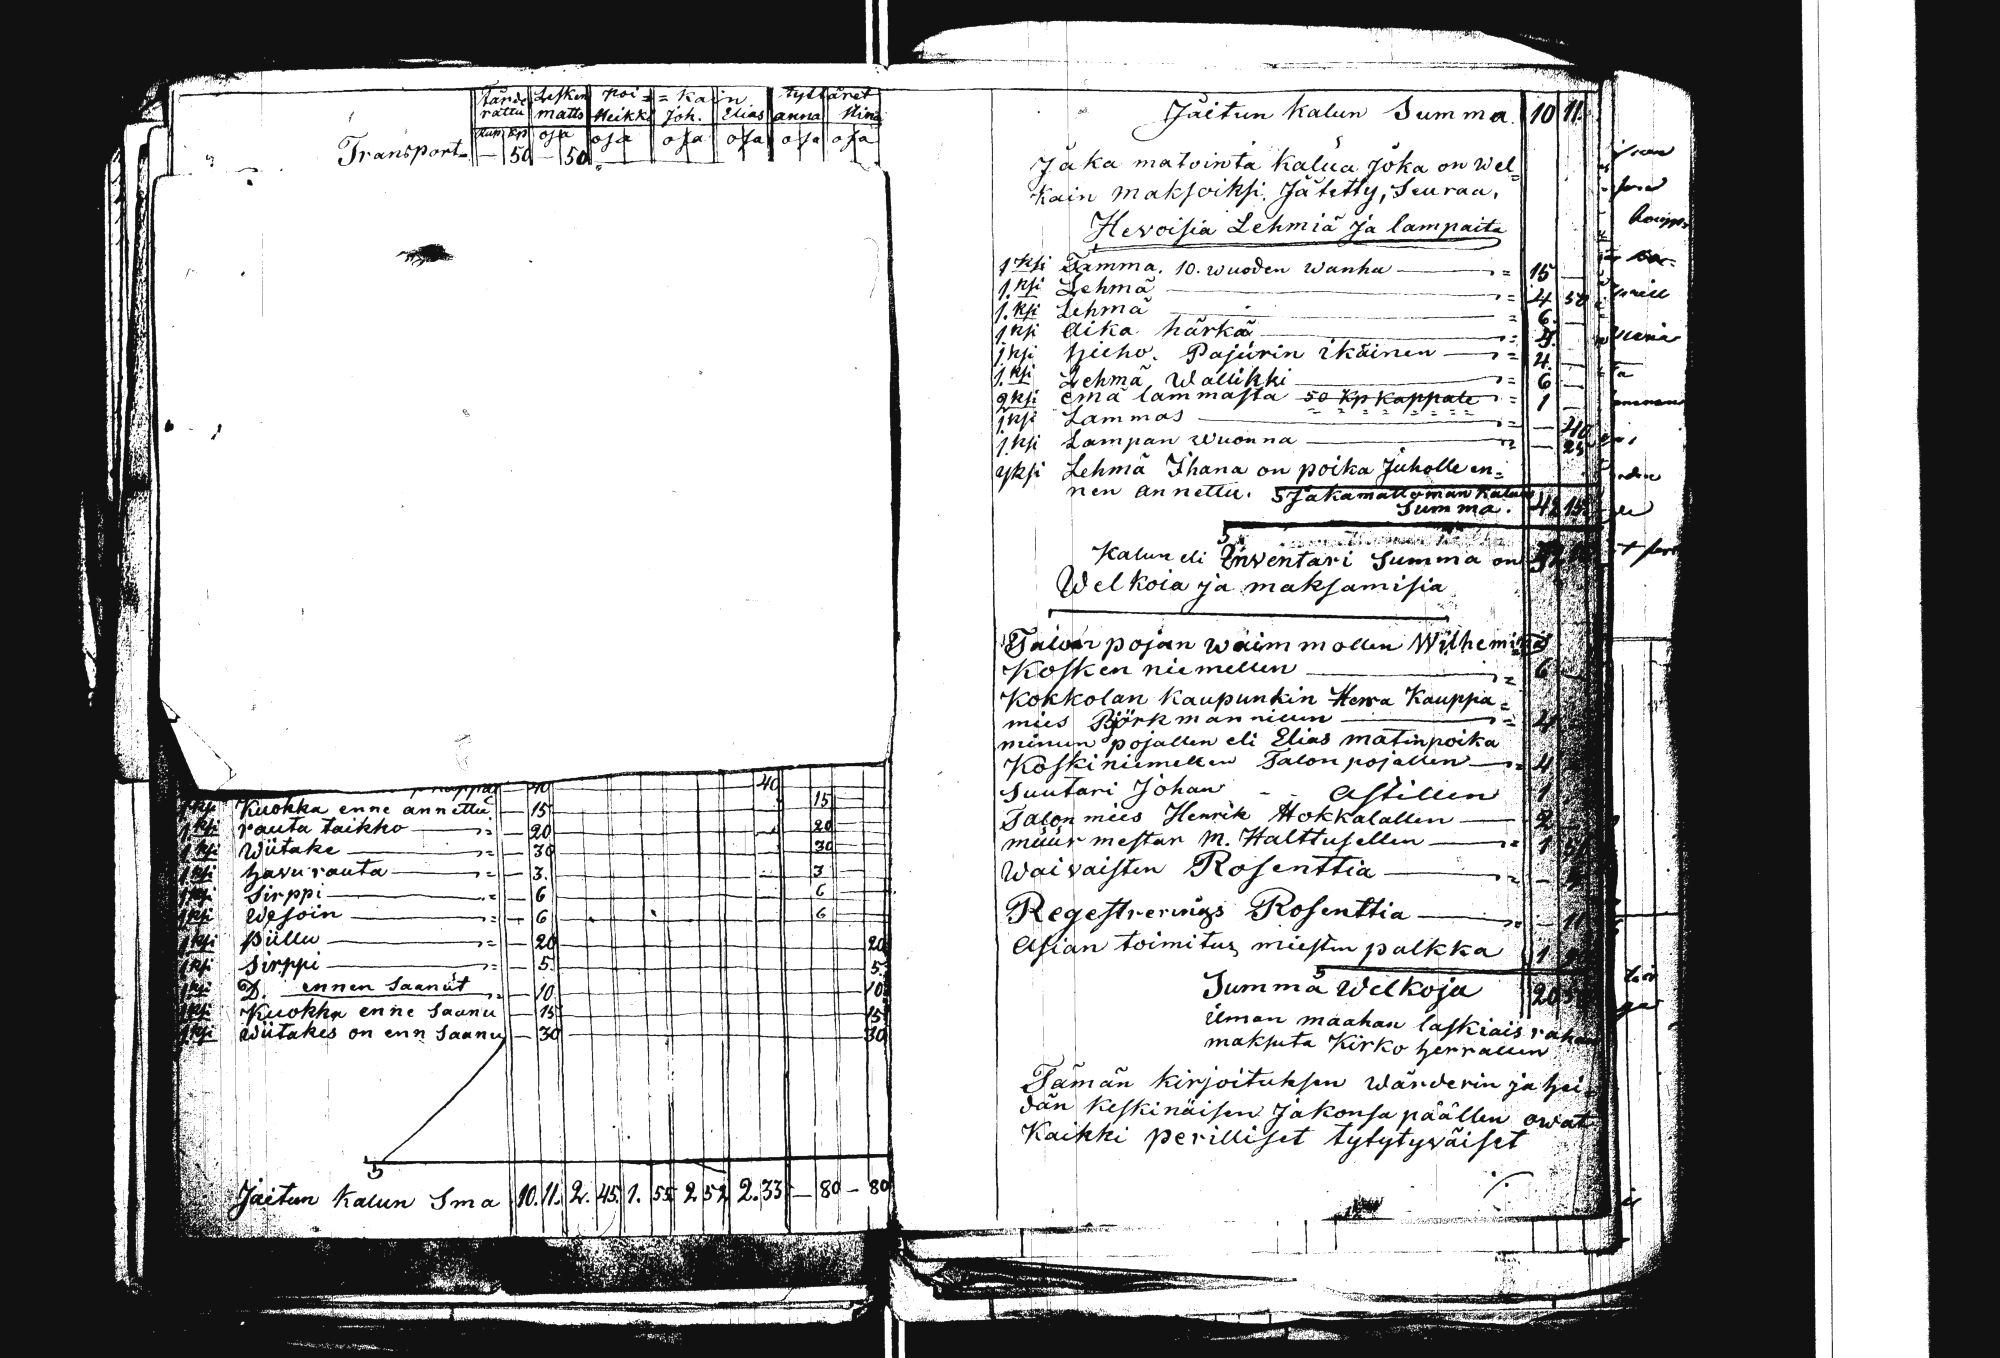 Lesken poi = kain tyttäret
rattu matts Heikki Joh. Elias anna
osa osa osa osa osa osa
Transport — 50 — 50
40 40
1 kpi Kuokka enne annettu — 15 15
1 kpi rauta taikko — 20 20
1 kpi Wiitake — 30 30
1 kpi havurauta — 3. 3
1 kpi Sirppi — 6 6
1 kpi Wesoin — 6 6
1 kpi piillu — 20 20
1 kpi Sirppi — 5. 5.
1 kpi D. ennen Saanut — 10 10
1 kpi Kuokka enne Saanu — 15 15
1 kpi Wiitakes on enn Saanu — 30 30
Jäitun Kalun Sma 10. 11. 2. 45 1. 55 2 52 2. 33 — 80 — 80
Jäitun Kalun Summa 10 11.
Jaka matointa Kalua Joka on wel=
kain maksoiksi Jätetty, Seuraa,
Hevoisia Lehmiä Ja lampaita
1 kpi Tamma. 10. wuoden wanha — 15 —
1. kpi Lehmä — 4 50
1. kpi Lehmä — 6. —
1 kpi Aika härkä
1 kpi hieho. Pajurin ikäinen — 4. —
1. kpi Lehmä Wallikki — 6 —
2 kpi emä lammasta 50 Kp Kappale — 1 —
1 kpi Lammas — — 40
1. kpi Lampan wuonna — — 25
yksi Lehmä Ihana on poika Juholle en=
nen annettu. Jakamattoman Kalun
Summa. 42 15
Kalun eli Inventari Summa on
Welkoia ja maksamisia
Talon pojan waimmollen Wilhemina
Kosken niemellen — 6
Kokkolan Kaupunkin Herra Kauppa=
mies Björkmannieun
minun pojallen eli Elias matinpoika
Koskiniemellen Talon pojallen — 4
Suutari Johan - - Astillen 1
Talon mies Henrik Hokkalallen — 2
müür mestar M. Halttusellen — 1
Waivaisten Rosenttia —
Regestrerings Rosenttia —
Asian toimitus miesten palkka 1
Summa Welkoja 20
ilman maahan laskiais rahan
maksuta Kirko herrallen
Tämän kirjoituksen Wärderin ja hei=
dän Keskinäisen Jakonsa päällen owat
Kaikki perilliset tytytyväiset